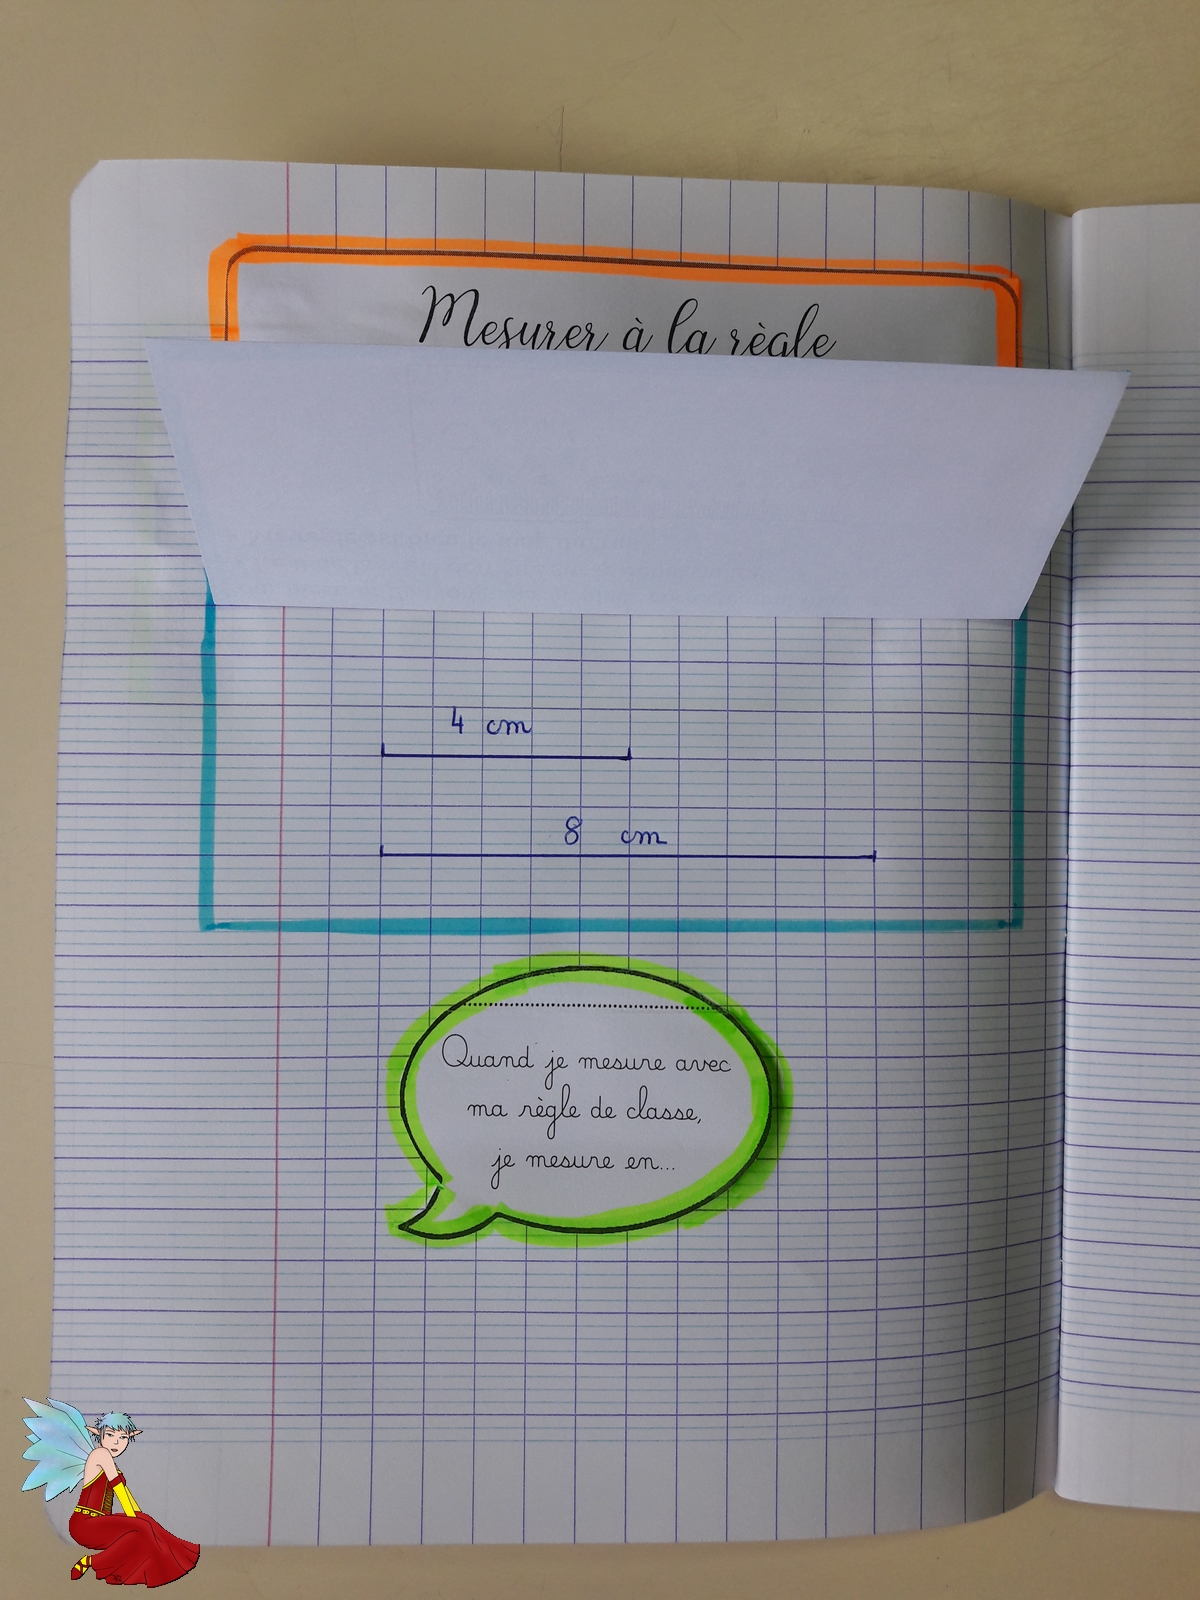 Mesurer à la règle
4 cm
8 cm
Quand je mesure avec
ma règle de classe,
je mesure en...